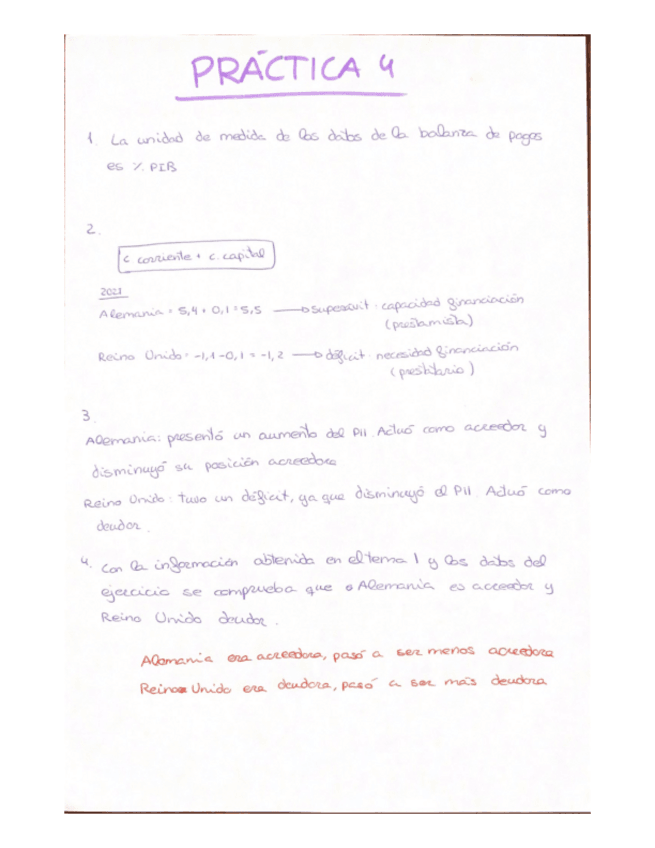 PRÁCTICA 4
1. La unidad de medida de los datos de la balanza de pagos
es % PIB
2.
c corriente + c. capital
2021
Alemania = 5,4 + 0,1 = 5,5 → superávit: capacidad financiación
(prestamista)
Reino Unido = -1,1 - 0,1 = -1,2 → déficit: necesidad financiación
(prestatario)
3
Alemania: presentó un aumento del PII. Actuó como acreedor y
disminuyó su posición acreedora
Reino Unido: tuvo un déficit, ya que disminuyó el PII. Actuó como
deudor.
4. Con la información obtenida en el tema 1 y los datos del
ejercicio se comprueba que Alemania es acreedor y
Reino Unido deudor.
Alemania era acreedora, pasó a ser menos acreedora
Reino Unido era deudora, pasó a ser más deudora